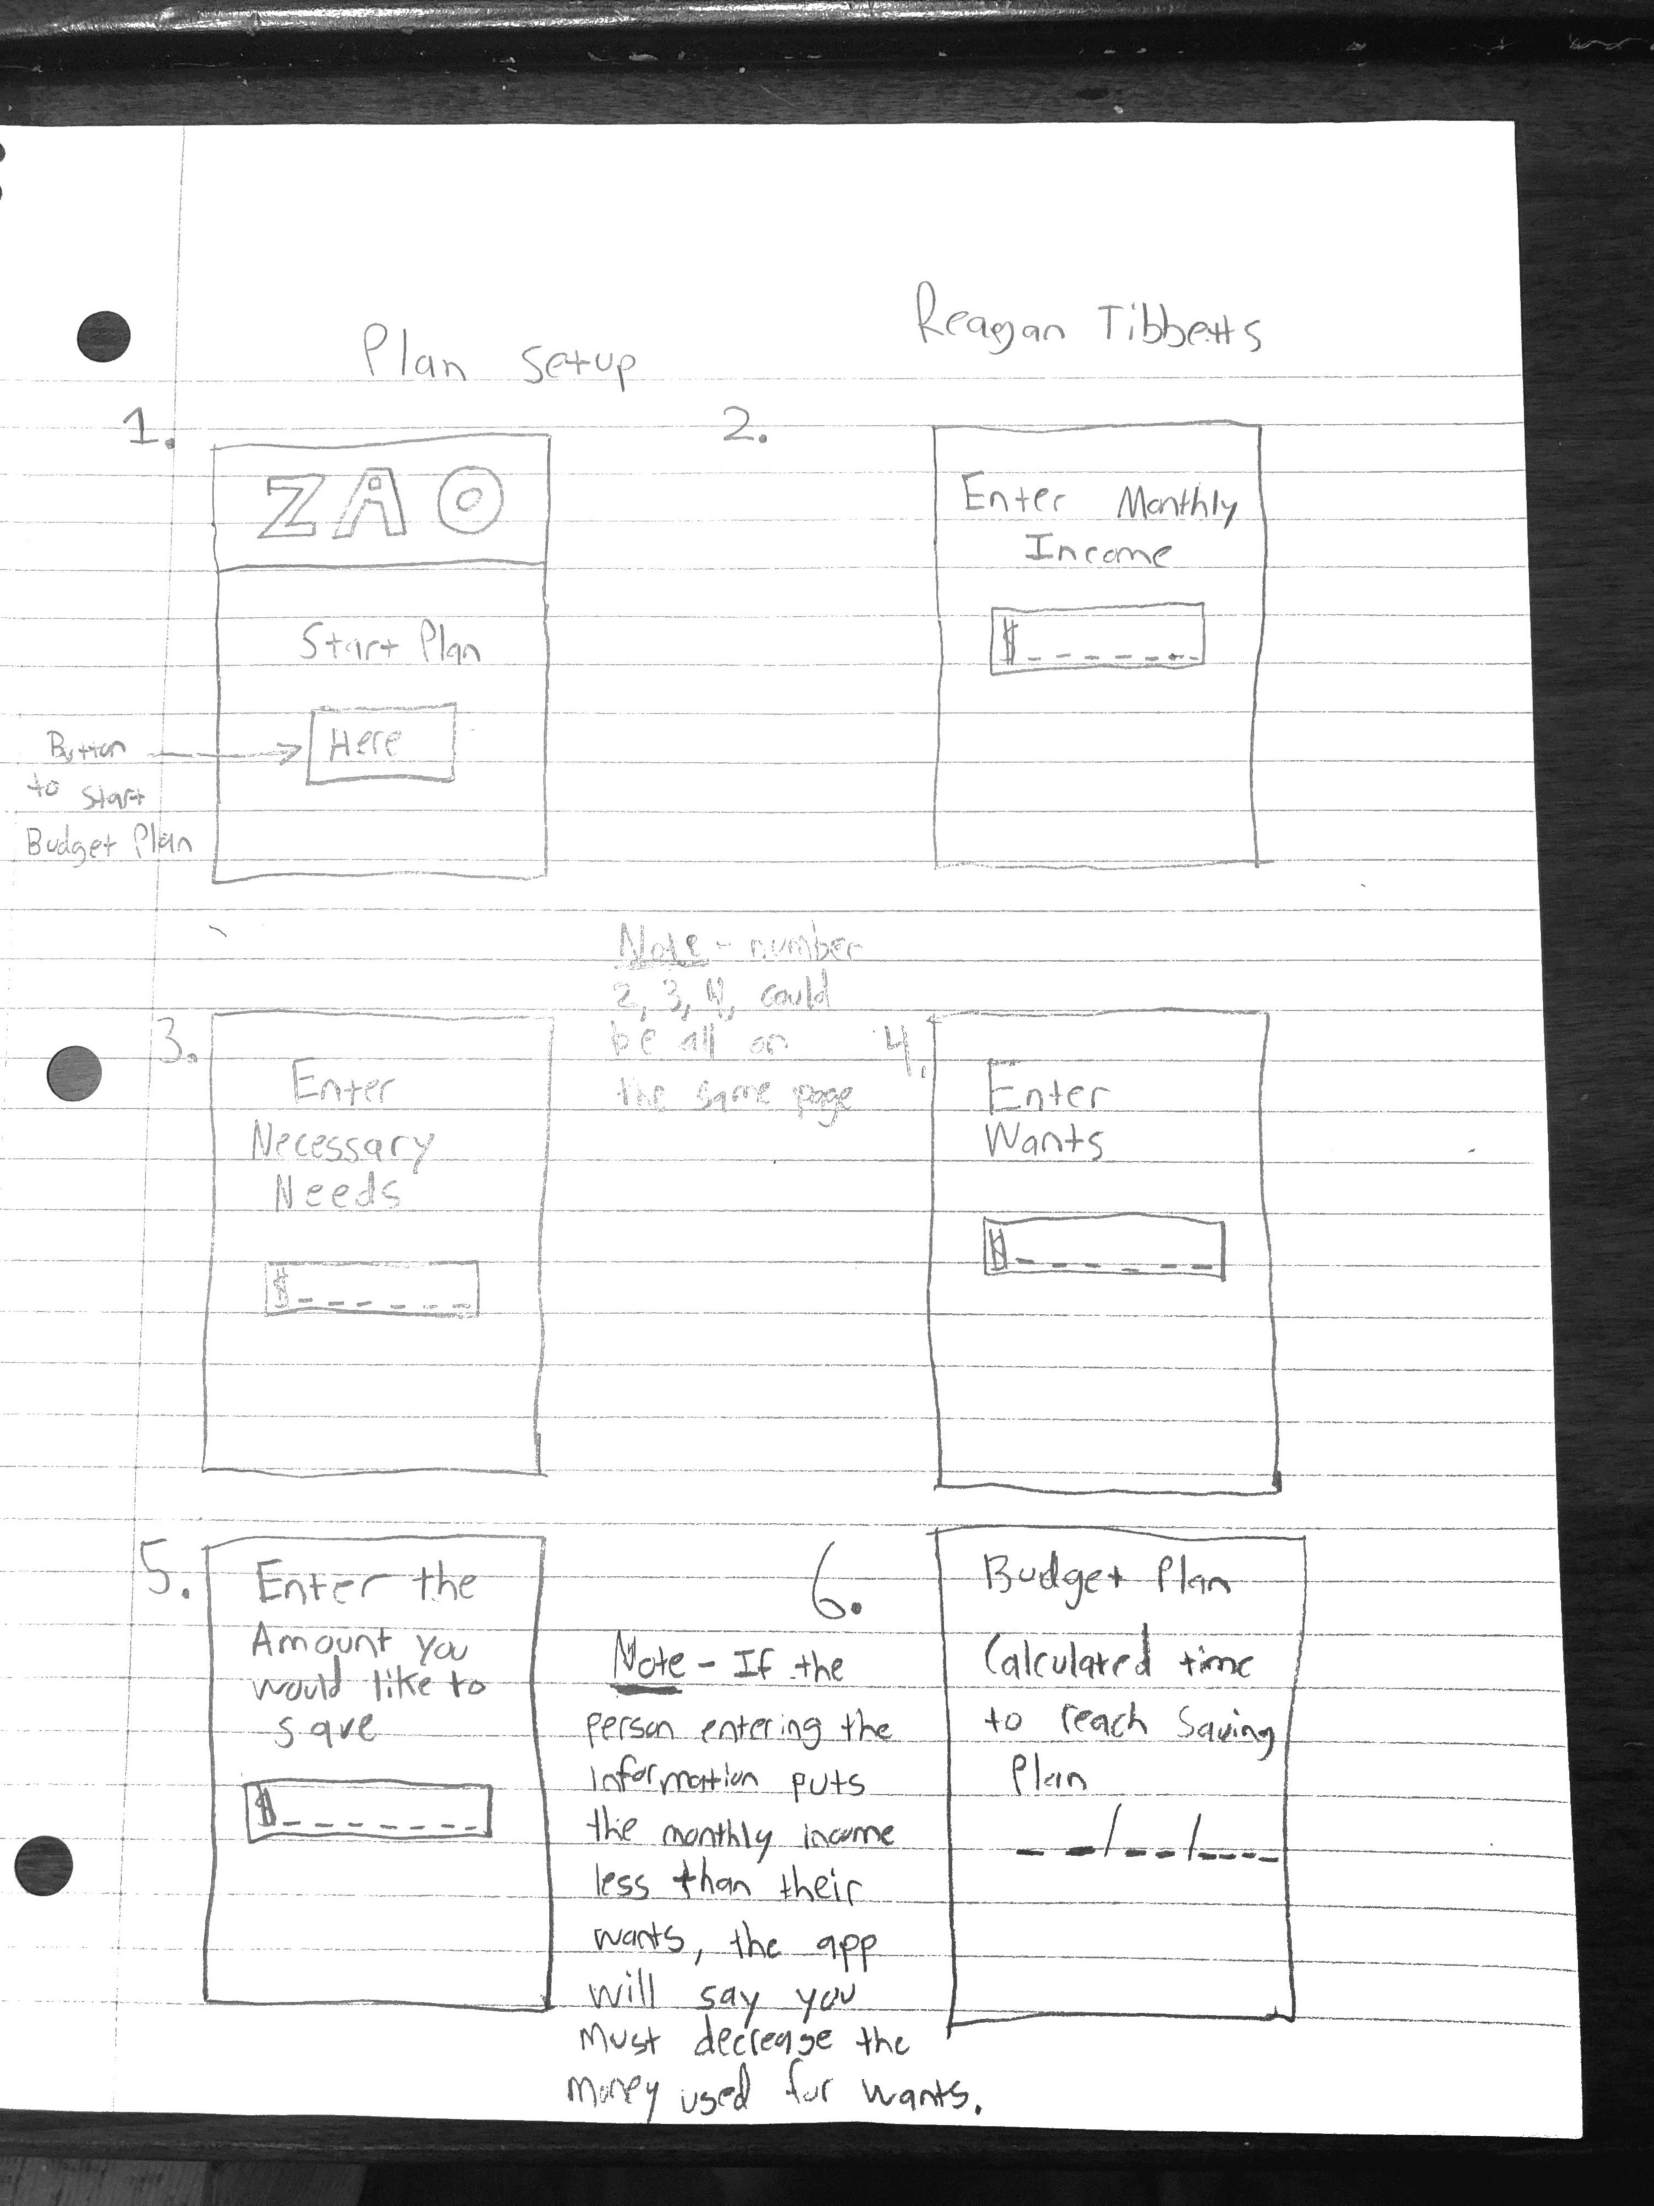 Plan Setup
Reagan Tibbetts
1.
ZAO
Start Plan
Here
Button
to start
Budget Plan
2.
Enter Monthly
Income
$ _ _ _ _ _ _
Note - number
2, 3, 4, could
be all on
the same page
3.
Enter
Necessary
Needs
$ _ _ _ _ _ _
4.
Enter
Wants
$ _ _ _ _ _ _
5.
Enter the
Amount you
would like to
save
$ _ _ _ _ _ _ _
Note - If the
person entering the
information puts
the monthly income
less than their
wants, the app
will say you
Must decrease the
money used for wants.
6.
Budget Plan
Calculated time
to reach Saving
Plan
_ _/_ _/_ _ _ _